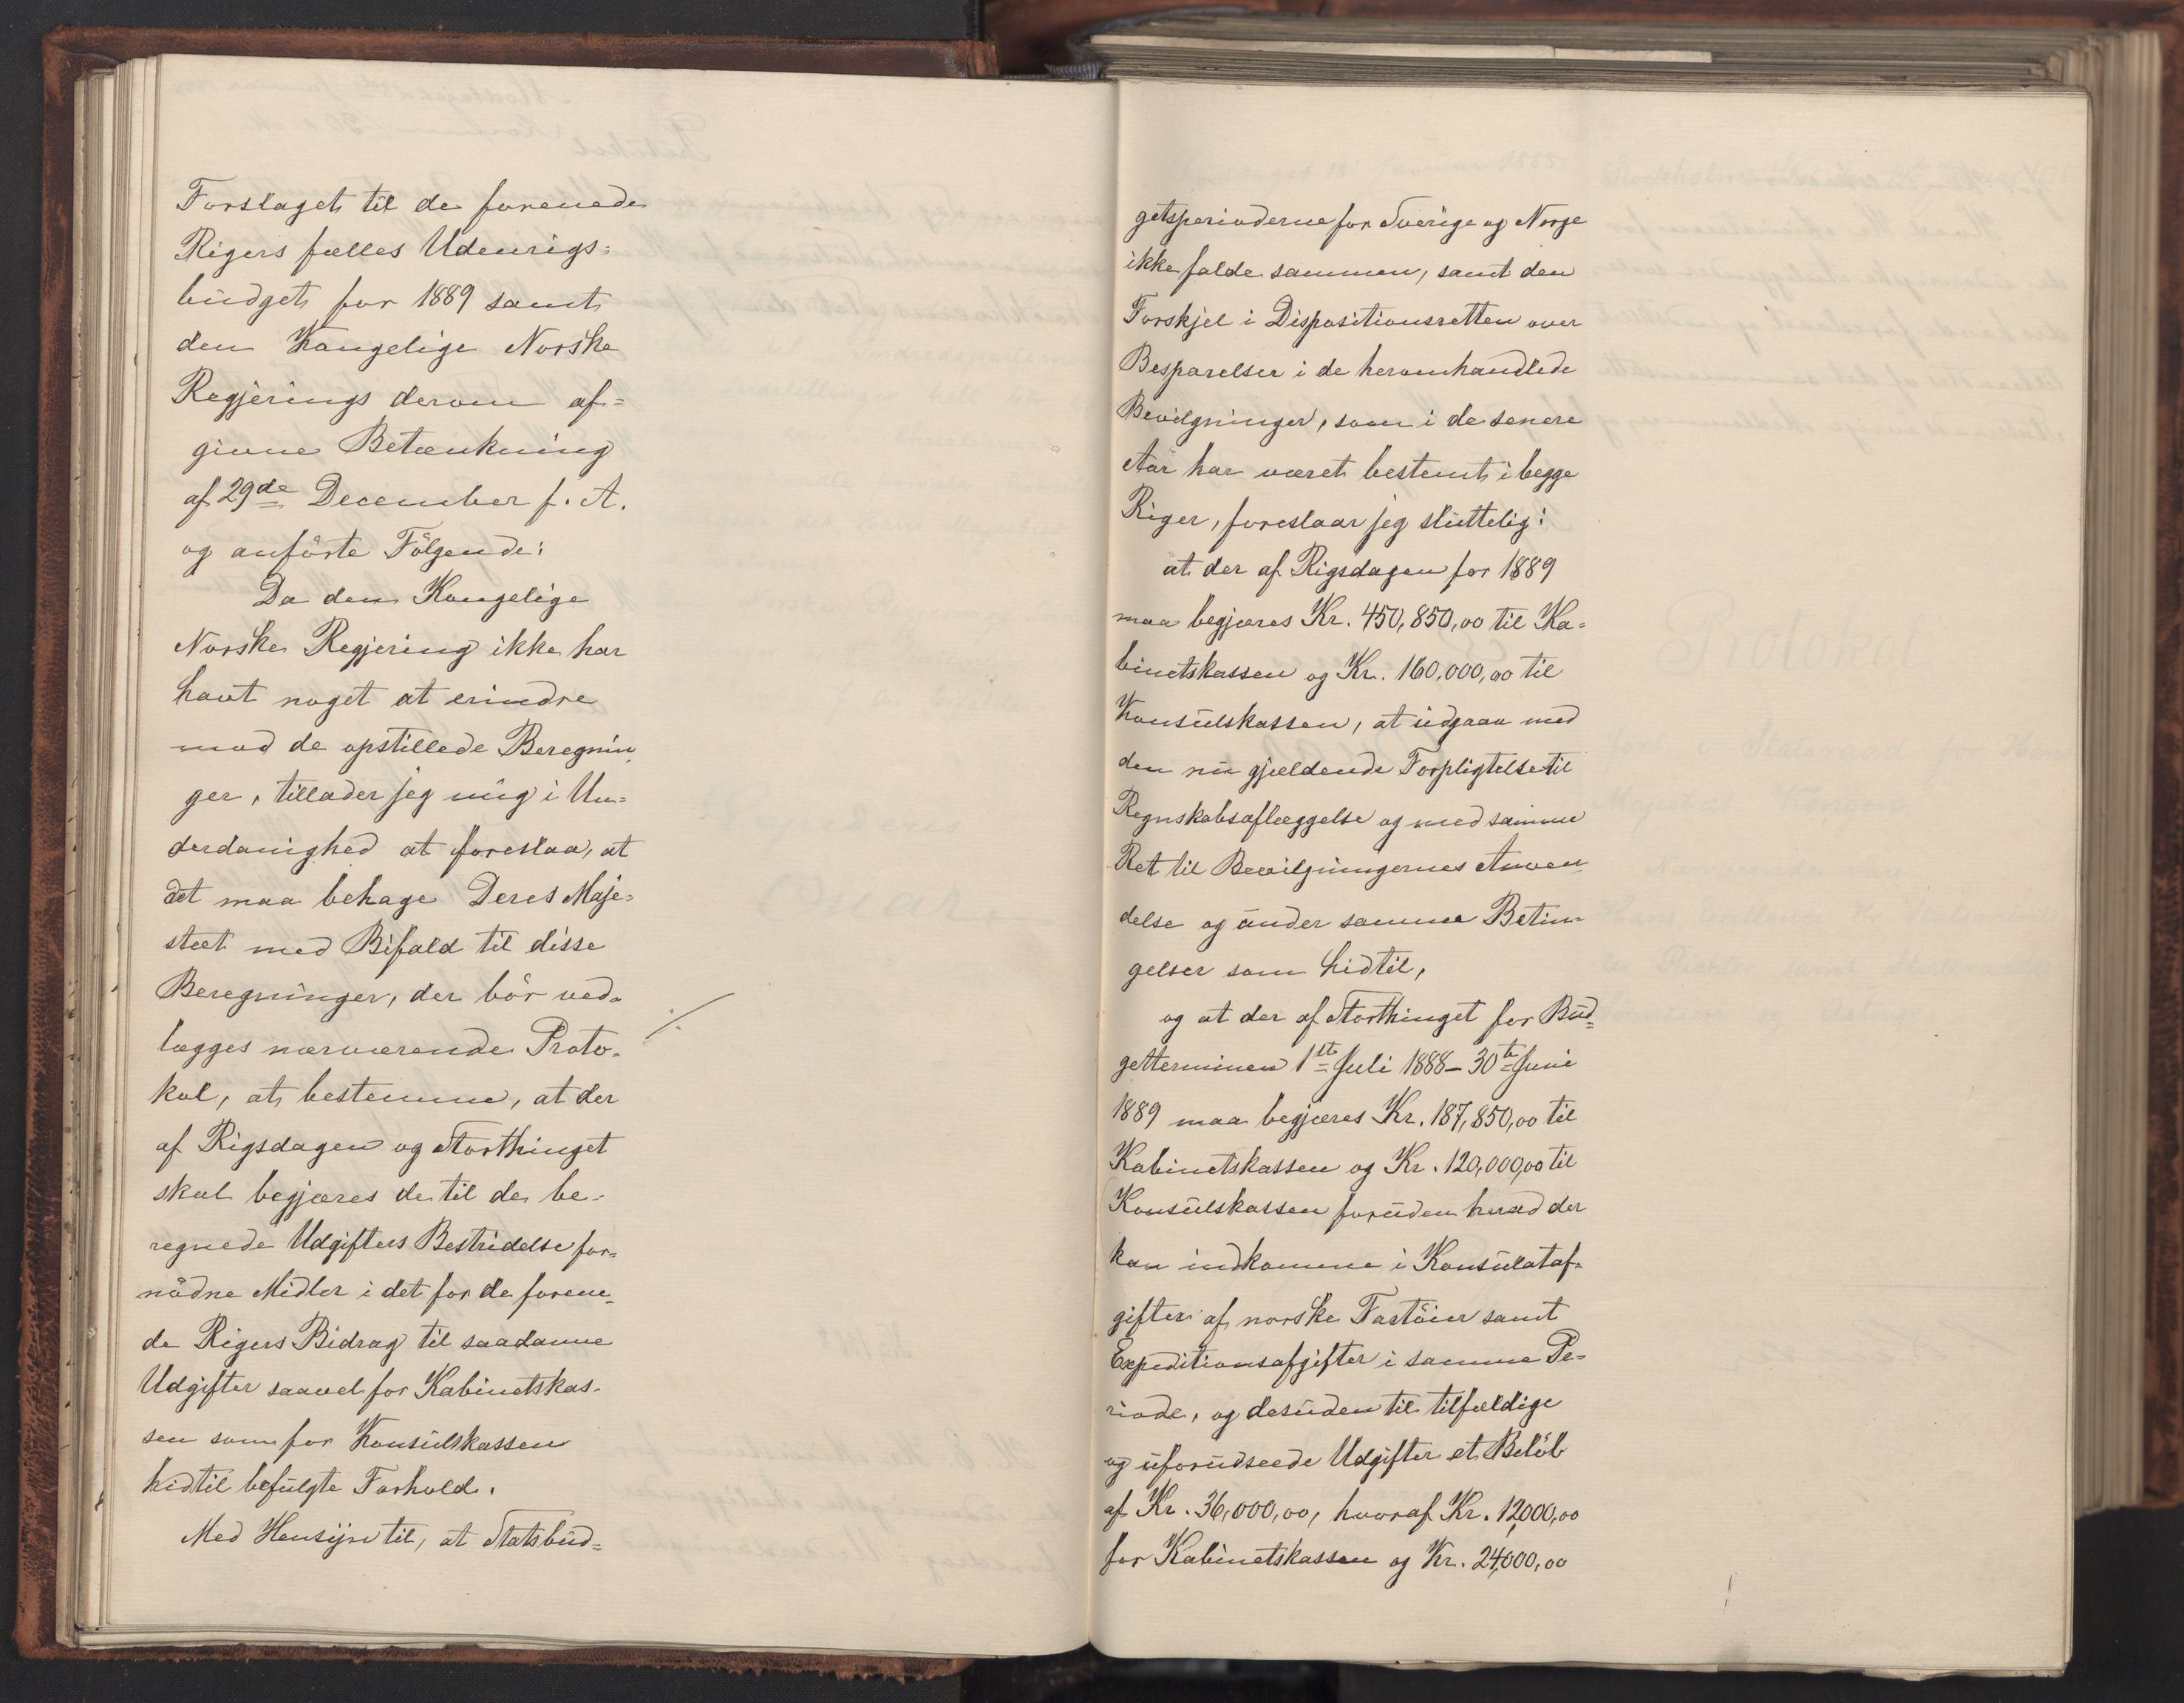 Forslaget til de forenede
Rigers fælles Udenrigs=
budget for 1889 samt
den Kongelige Norske
Regjerings derom af=
givne Betænkning
af 29de December f. A.
og anførte Følgende:
Da den Kongelige
Norske Regjering ikke har
havt noget at erindre
mod de opstillede Beregnin,
ger, tillader jeg mig i Un=
derdanighed at foreslaa, at
det maa behage Deres Maje=
stæt med Bifald til disse
Beregninger, der bør ved=
lægges nærværende Proto=
kol, at bestemme, at der
af Rigsdagen og Storthinget
skal begjæres de til de be-
regnede Udgifters Bestridelse for=
nødne Midler i det for de forene=
de Rigers Bidrag til saadanne
Udgifter saavel for Kabinetskas-
sen som for Konsulskassen
hidtil befulgte Forhold.
Med Hensijn til, at Statsbud=
getsperioderne for Sverige og Norge
ikke falde sammen, samt den
Forskjel i Dispositionsretten over
Besparelser i de heromhandlede
Bevilgninger, som i de senere
Aar har været bestemt i begge
Riger, foreslaar jeg sluttelig:
at der af Rigsdagen for 1889
maa begjæres Kr. 450,850,00 til Ka=
binetskassen og Kr. 160.000,00 til
Konsulskassen, at udgaae med
den nu gjældende Forpligtelse til
Regnskabsaflæggelse og med samme
Ret til Bevilgningernes Anven
delse og under samme Betin=
gelser som hidtil,
og at der af Storthinget for Bud=
getterminen 1ste Juli 1888 – 30te Juni
1889 maa begjæres Kr. 187,850,00 til
Kabinetskassen og Kr. 120,000,00 til
Konsulskassen foruden hvad der
kan indkomme i Konsulataf=
gifter af norske Fartøier samt
Expeditionsafgifter i samme Pe=
riode, og desuden til tilfældige
og uforudseede Udgifter et Beløb
af Kr. 36,000,00, hvoraf Kr. 12,000,00
for Kabinetskassen og Kr. 24,000,00